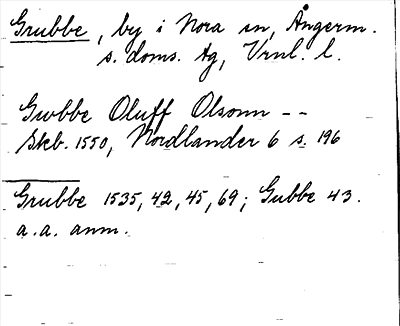 Grubbe, by i Nora sn, Ångerm.
s. doms. tg, Vrnl. l.
Gwbbe Oluff Olsonn --
Skb. 1550, Nordlander 6 s. 196
Grubbe 1535, 42, 45, 69; Gubbe 43.
a.a. anm.